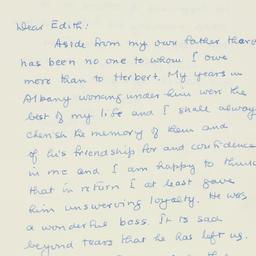 Dear Edith:
Aside from my own father there
has been no one to whom I owe
more than to Herbert. My years in
Albany working under him were the
best of my life and I shall always
cherish the memory of them and
of his friendship for and confidence
in me and I am happy to think
that in return I at least gave
him unswerving loyalty. He was
a wonderful boss. It is sad
beyond tears that he has left us.